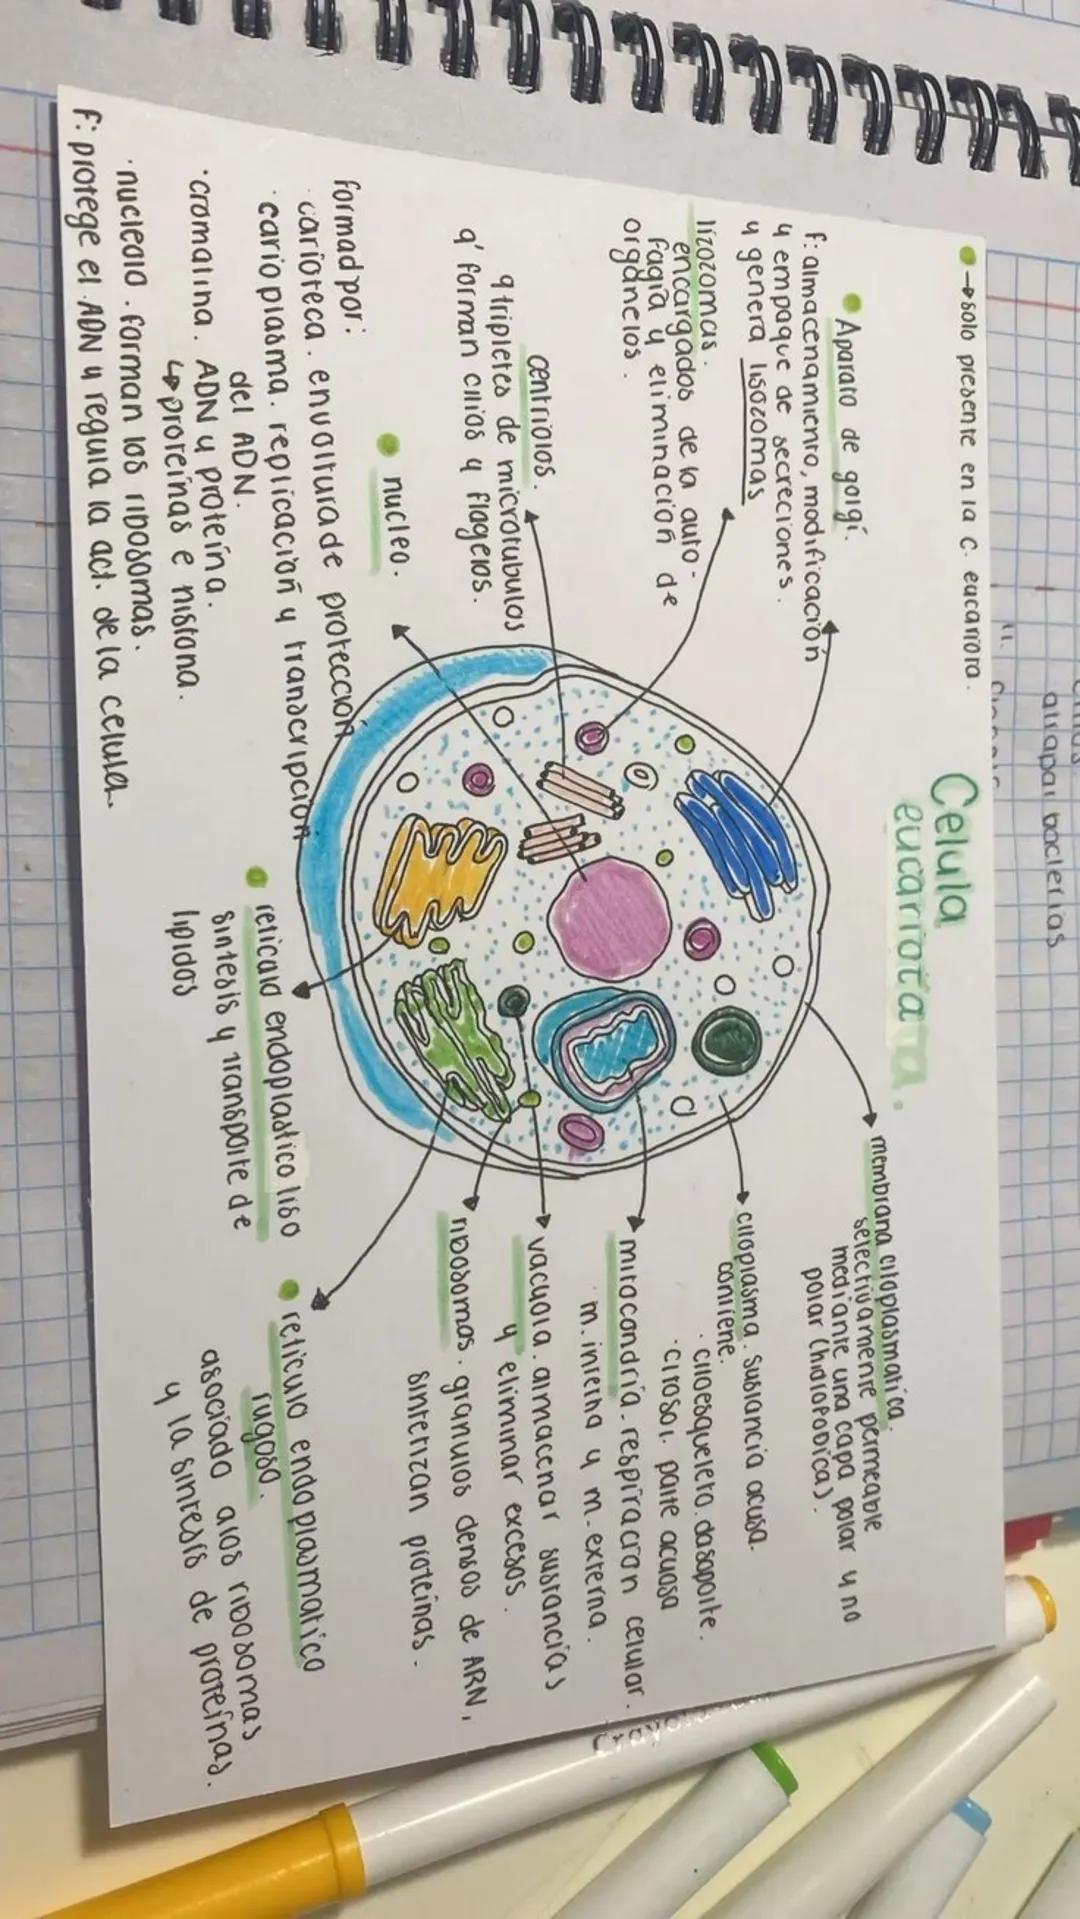 atrapar bacterias
● → solo presente en la c. eucariota.
Celula
eucariota.
● Aparato de golgi.
F: almacenamiento, modificación
y empaque de secreciones.
y genera lisozomas
lizozomas.
encargados de la auto-
fagia y eliminación de
organelos.
centriolos.
9 tripletes de microtubulos
q' forman cilios y flagelos.
● nucleo.
formad por:
· carioteca. envoltura de protección
· carioplasma. replicación y transcripción
del ADN.
· cromatina. ADN y proteína.
↳ proteínas e histona.
· nucleolo. forman los ribosomas.
F: protege el ADN y regula la act. de la célula.
membrana citoplasmatica.
selectivamente permeable
mediante una capa polar y no
polar (hidrofobica).
citoplasma. sustancia acusa.
contiene.
· citoesqueleto. da soporte.
· citosol. parte acuosa
mitocondria. respiración celular.
· m. interna y m. externa.
vacuola. almacenar sustancias
y eliminar excesos.
ribosomas. granulos densos de ARN,
sintetizan proteínas.
● reticulo endoplastico liso
sintesis y transporte de
lipidos
● reticulo endoplasmatico
rugoso.
asociado a los ribosomas
y la sintesis de proteínas.